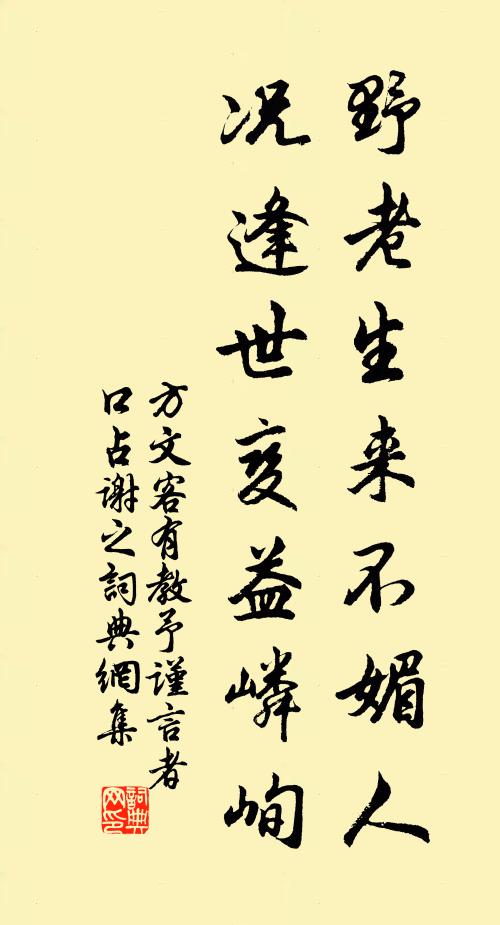 野老生来不媚人
况逢世变益嶙峋
方文客有教予谨言者
口占谢之詞典網集
詞典網印